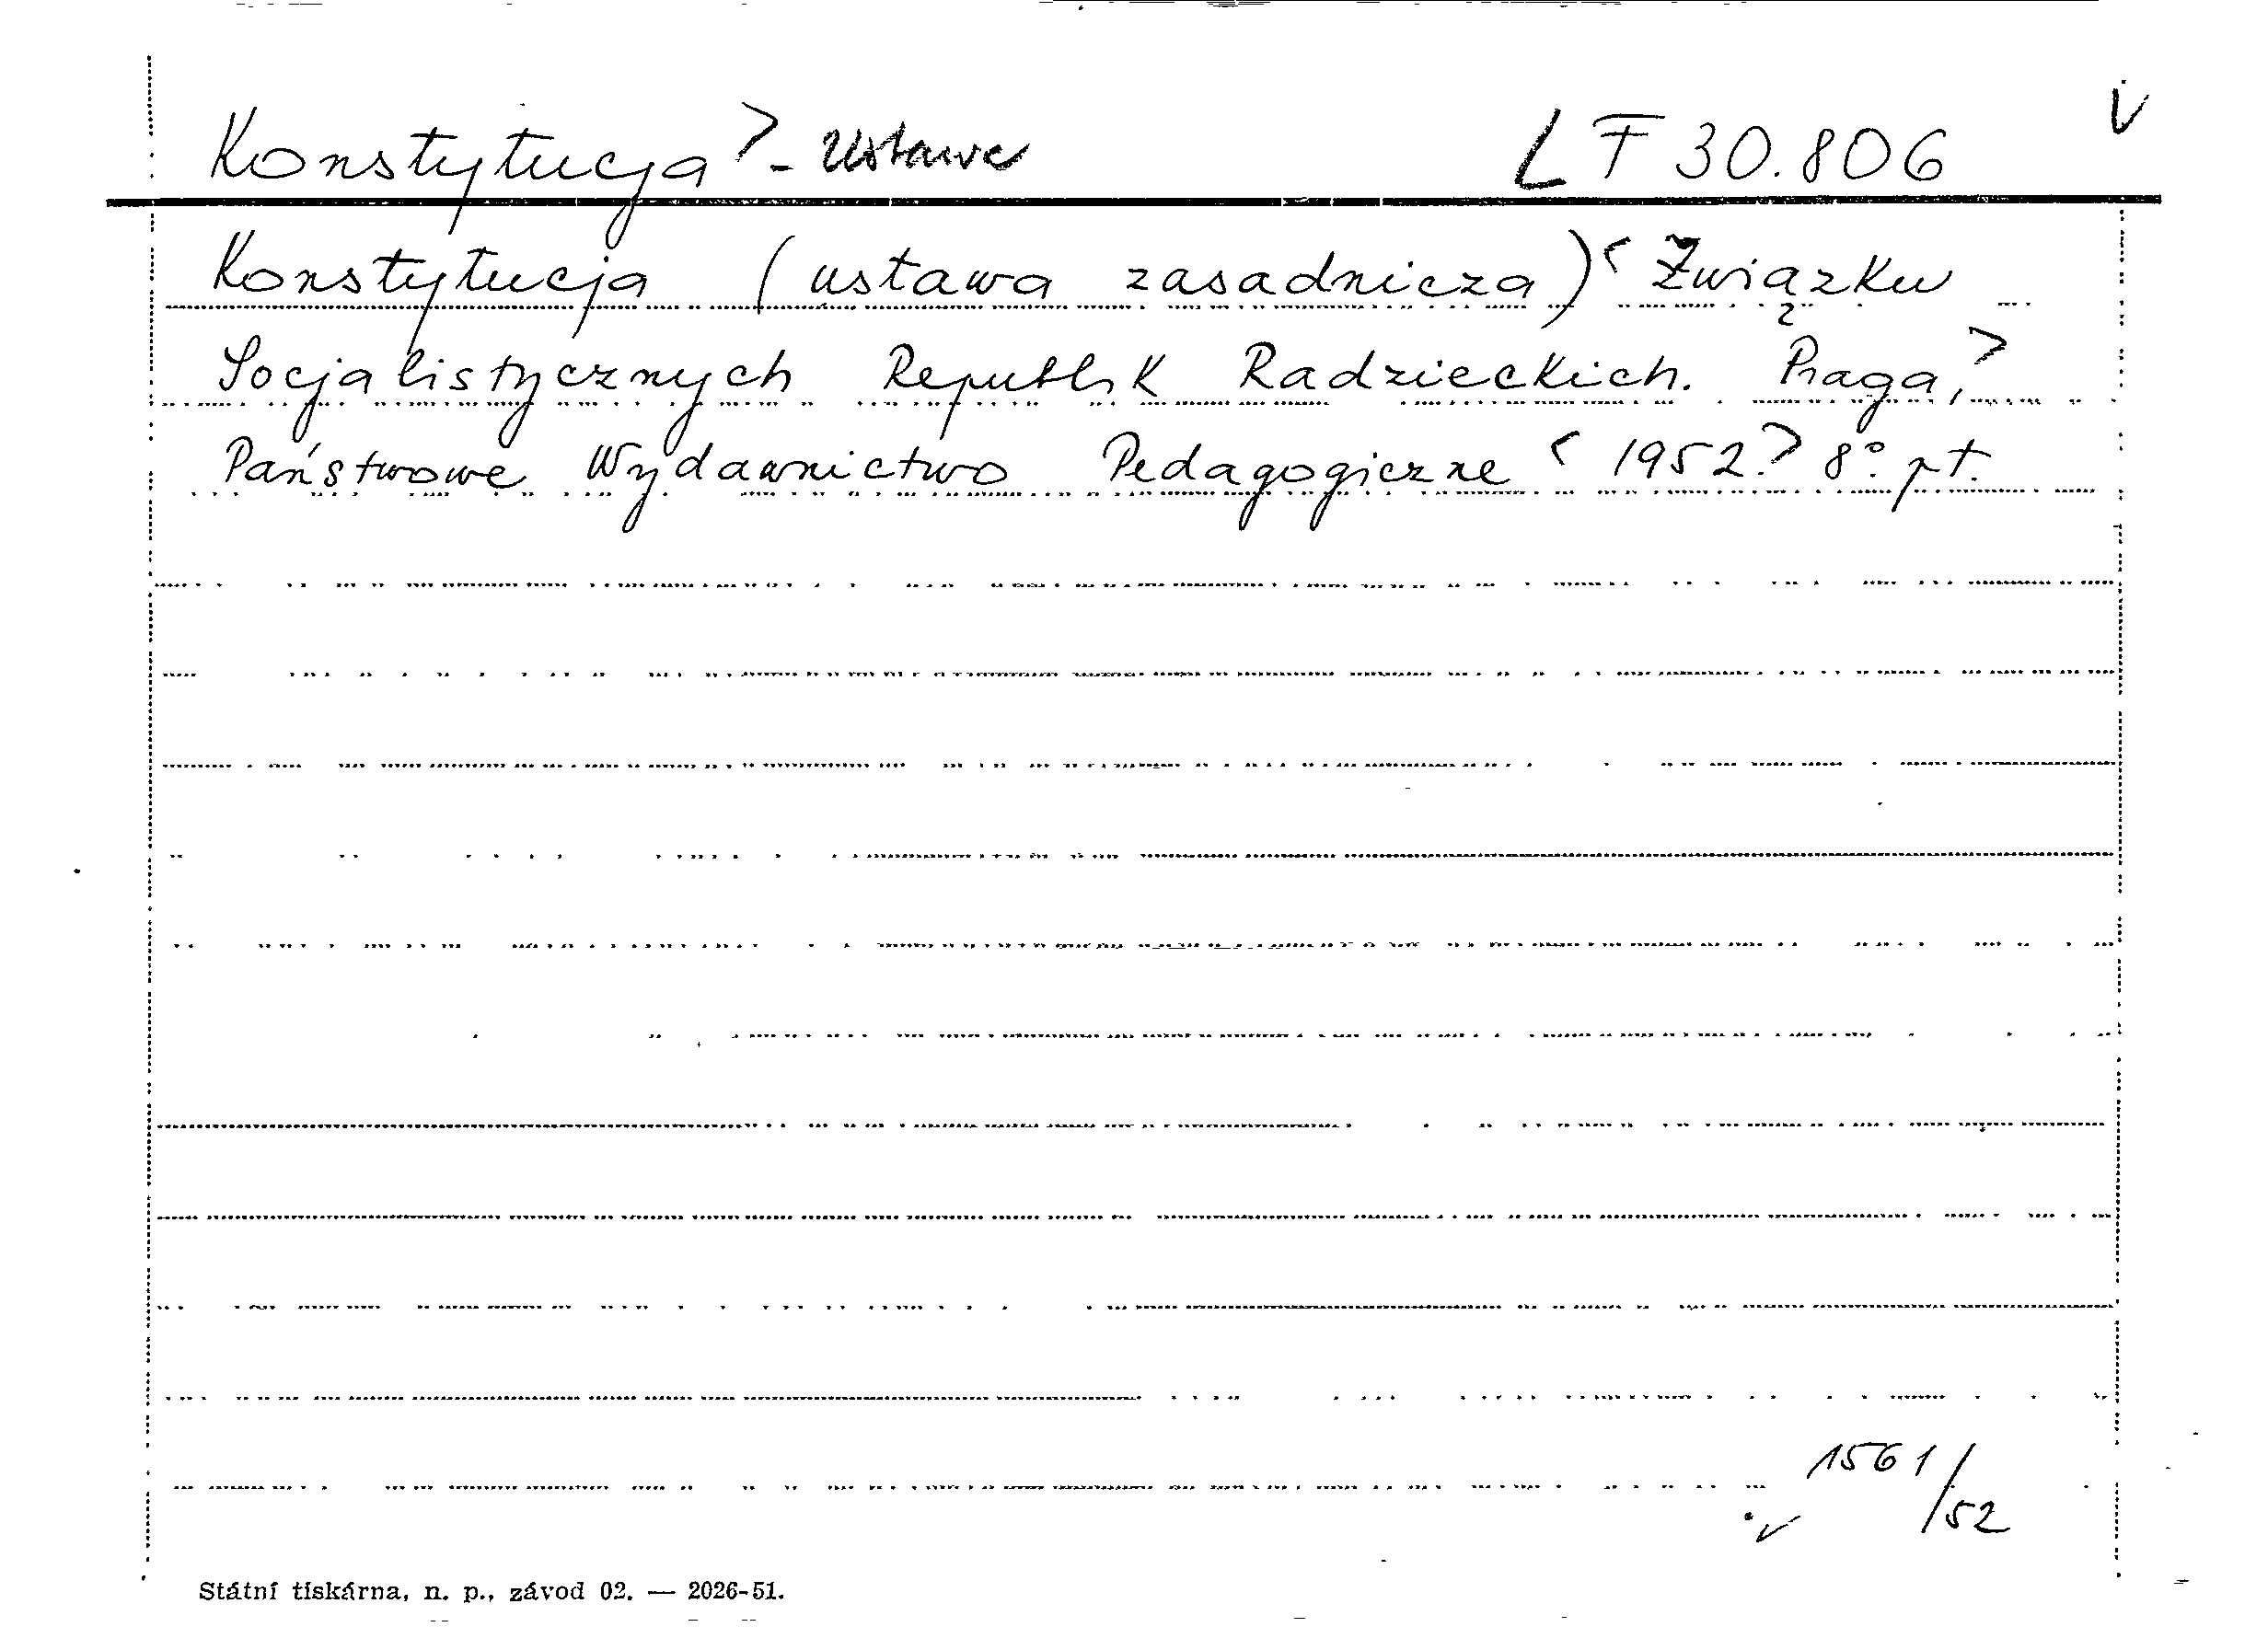 Konstytucja > - Ustawa LF 30.806 V
Konstytucja (ustawa zasadnicza) < Związku
Socjalistycznych Republik Radzieckich. Praga, >
Państwowe Wydawnictwo Pedagogiczne < 1952. > 8° pt.
1561/52
Státní tiskárna, n. p., závod 02. — 2026-51.